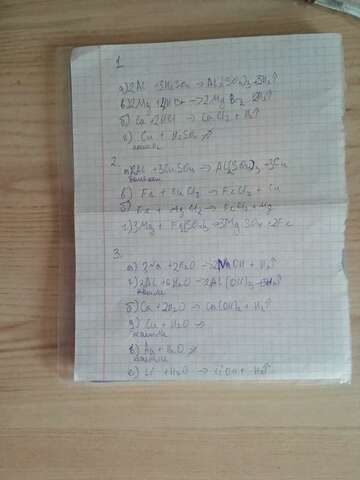 1.
а) 2Al + 3H₂SO₄ → Al₂(SO₄)₃ + 3H₂↑
в) 2Mg + 4HBr → 2MgBr₂ + 2H₂↑
б) Ca + 2HCl → CaCl₂ + H₂↑
г) Cu + H₂SO₄ ↛
2.
а) 2Al + 3CuSO₄ → Al₂(SO₄)₃ + 3Cu
в) Fe + CuCl₂ → FeCl₂ + Cu
б) Fe + HgCl₂ → FeCl₂ + Hg
г) 3Mg + Fe₂(SO₄)₃ → 3MgSO₄ + 2Fe
3.
а) 2Na + 2H₂O → 2NaOH + H₂↑
2Al + 6H₂O → 2Al(OH)₃ + 3H₂↑
б) Ca + 2H₂O → Ca(OH)₂ + H₂↑
д) Cu + H₂O ↛
H₂O ↛
е) Li + H₂O → LiOH + H₂↑